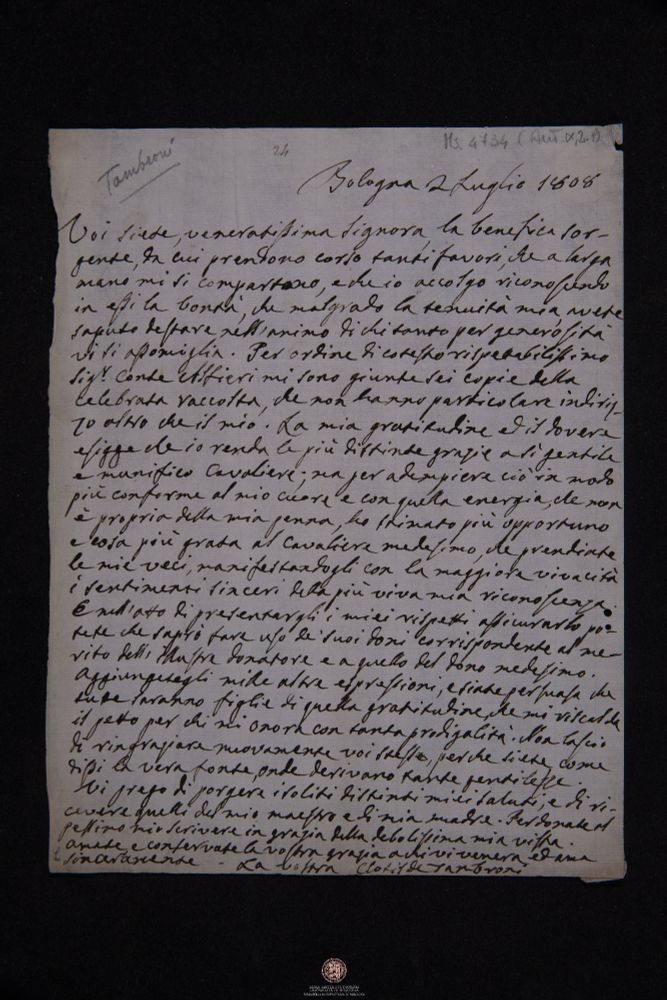 Tambroni
24
Ms. 4734 (
Bologna 2 Luglio 1808
Voi siete, veneratissima Signora, la benefica sor-
gente, da cui prendono corso tanti favori, che a larga
mano mi si compartono, e che io accolgo riconoscendo
in essi la bontà, che malgrado la tenuità mia avete
saputo destare nell'animo di chi tanto per generosità
vi si assomiglia. Per ordine di cotesto rispetabilissimo
Sigr. Conte Alfieri mi sono giunte sei copie della
celebrata raccolta, che non hanno particolare indiriz-
zo altro che il mio. La mia gratitudine ed il dovere
esigge che io renda le più distinte grazie a sì gentile
e munifico Cavaliere; ma per adempiere ciò in modo
più conforme al mio cuore e con quella energia, che non
è propria della mia penna, ho stimato più opportuno
e cosa più grata al Cavaliere medesimo, che prendiate
le mie veci, manifestandogli con la maggiore vivacità
i sentimenti sinceri della più viva mia riconoscenza.
E nell'atto di presentargli i miei rispetti assicurarlo po-
tete che saprò fare uso de' suoi doni corrispondente al me-
rito dell'illustre donatore e a quello del dono medesimo.
Aggiungetegli mille altre espressioni, e siate persuasa che
tutte saranno figlie di quella gratitudine, che mi riscalda
il petto per chi mi onora con tanta prodigalità. Non lascio
di ringraziare nuovamente voi stessa, perchè siete, come
dissi la vera fonte, onde derivano tante gentilesse.
Vi prego di porgere i soliti distinti miei saluti, e di ri-
cevere quelli del mio maestro e di mia madre. Perdonate al
pessimo mio scrivere in grazia della debolissima mia vista.
Amate e conservate la vostra grazia a chi vi venera ed ama
sinceramente. La vostra Clotilde Tambroni